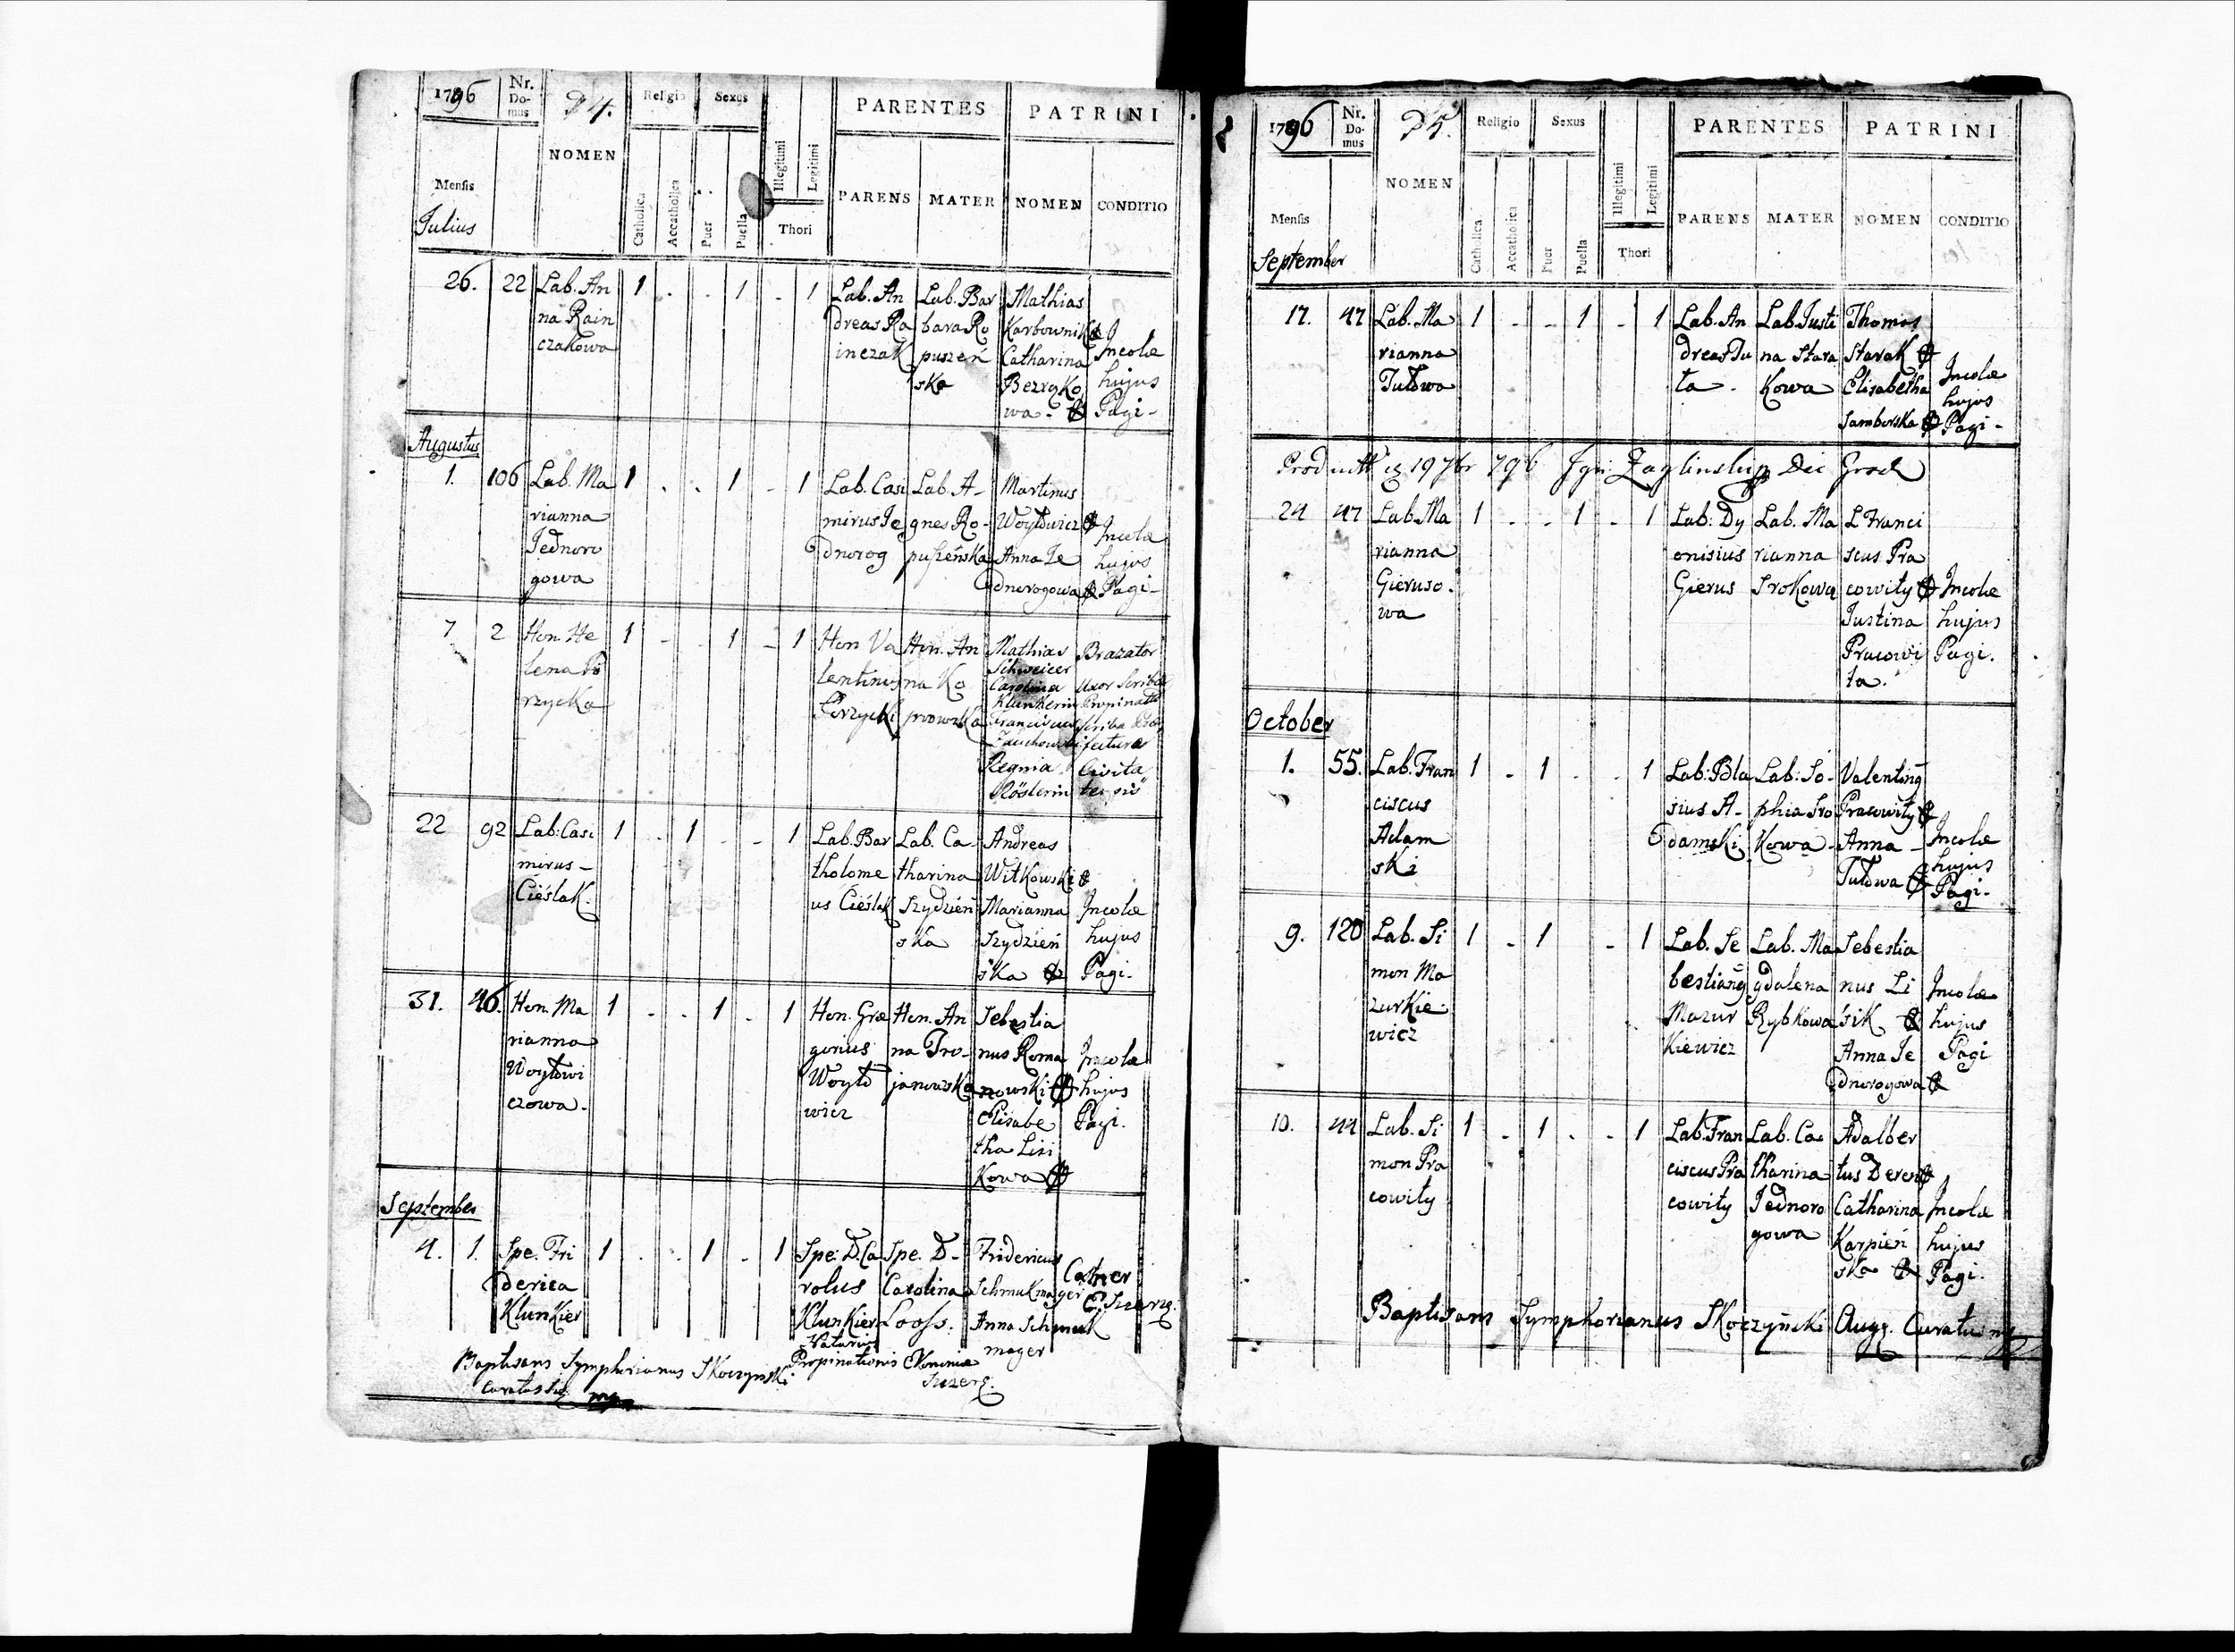 1796
Nr. Domus
24.
NOMEN
Religio
Catholica
Accatholica
Sexus
Puer
Puella
Illegitimi
Legitimi
Thori
PARENTES
PARENS
MATER
PATRINI
NOMEN
CONDITIO
Mensis
Julius
26.
22
Lab. An
na Rain
czakowa
1 . . 1 . 1
Lab. An
dreas Ra
inczak
Lab. Bar
bara Ro
puszeń
ska
Mathias
Karbownik
Catharina
Bezręko
wa -
Incolæ
hujus
Pagi -
Augustus
1.
106
Lab. Ma
rianna
Jednoro
gowa
1 . . 1 - 1
Lab. Casi
mirus Je
dnorog
Lab. A-
gnes Ro-
puszeńska
Martinus
Woytowicz
Anna Je
dnorogowa
Incolæ
hujus
Pagi -
7
2
Hon. He
lena Po
rzycka
1 - . 1 - 1
Hon Va
lentinus
Porzycki
Hon. An
na Ko
prowska
Mathias
Schweicer
Carolina
Klunkerin
Franciscus
Regnia
Röslerin
Brazator
Uxor Scribæ
Propinatio
Scriba
fecturæ
Civita
22
92
Lab: Casi
mirus -
Cieślak.
1 . 1 . - 1
Lab. Bar
tholome
us Cieślak
Lab. Ca-
tharina
Szydzień
ska
Andreas
Witkowski
Marianna
Szydzień
ska
Incolæ
hujus
Pagi -
31.
46.
Hon. Ma
rianna
Woytowi
czowa.
1 . . 1 . 1
Hon. Gre
gorius
Woyto
wicz
Hon. An
na Tro-
janowska
Sebestia
nus Roma
nowski
Elisabe
tha Lisi
Kowa
Incolæ
hujus
Pagi.
September
4.
1.
Spe. Fri
derica
Klunkier
1 . . 1 . 1
Spe: D. Ca
rolus
Klunkier
Propinationis
Spe. D-
Carolina
Looss.
Fridericus
Schmukmager
Anna Schmuk
mager
Baptisans Symphorianus Skorzynski
1796
Nr. Domus
25.
NOMEN
Religio
Catholica
Accatholica
Sexus
Puer
Puella
Illegitimi
Legitimi
Thori
PARENTES
PARENS
MATER
PATRINI
NOMEN
CONDITIO
Mensis
September
17.
47
Lab. Ma
rianna
Tutowa
1 - - 1 - 1
Lab. An
dreas Tu
ta -
Lab. Justi
na Stara
Kowa
Thomas
Starak
Elisabetha
Samborska
Incolæ
hujus
Pagi -
24
47
Lab. Ma
rianna
Gieruso.
wa
1 . . 1 - 1
Lab: Dy
onisius
Gierus
Lab. Ma
rianna
Srokowa
L Franci
scus Pra
cowity
Justina
Pracowi
ta.
Incolæ
hujus
Pagi.
October
1.
55.
Lab. Fran
ciscus
Adam
ski
1 - 1 . . 1
Lab: Bla
sius A-
damski
Lab: So-
phia Sro
Kowa -
Valentinus
Pracowity
Anna -
Tutowa
Incolæ
hujus
Pagi -
9.
120
Lab. Si
mon Ma
zurkie-
wicz
1 - 1 - 1
Lab. Se
bestianus
Mazur
Kiewicz
Lab. Ma
gdalena
Rybkowa
Sebestia
nus Li
sik
Anna Je
dnorogowa
Incolæ
hujus
Pagi
10.
44
Lab. Si
mon Pra
cowity
1 . 1 . . 1
Lab. Fran
ciscus Pra
cowity
Lab. Ca
tharina
Jednoro
gowa
Adalber
tus Deren
Catharina
Karpień
ska
Incolæ
hujus
Pagi.
Baptisans Symphorianus Skorzyński